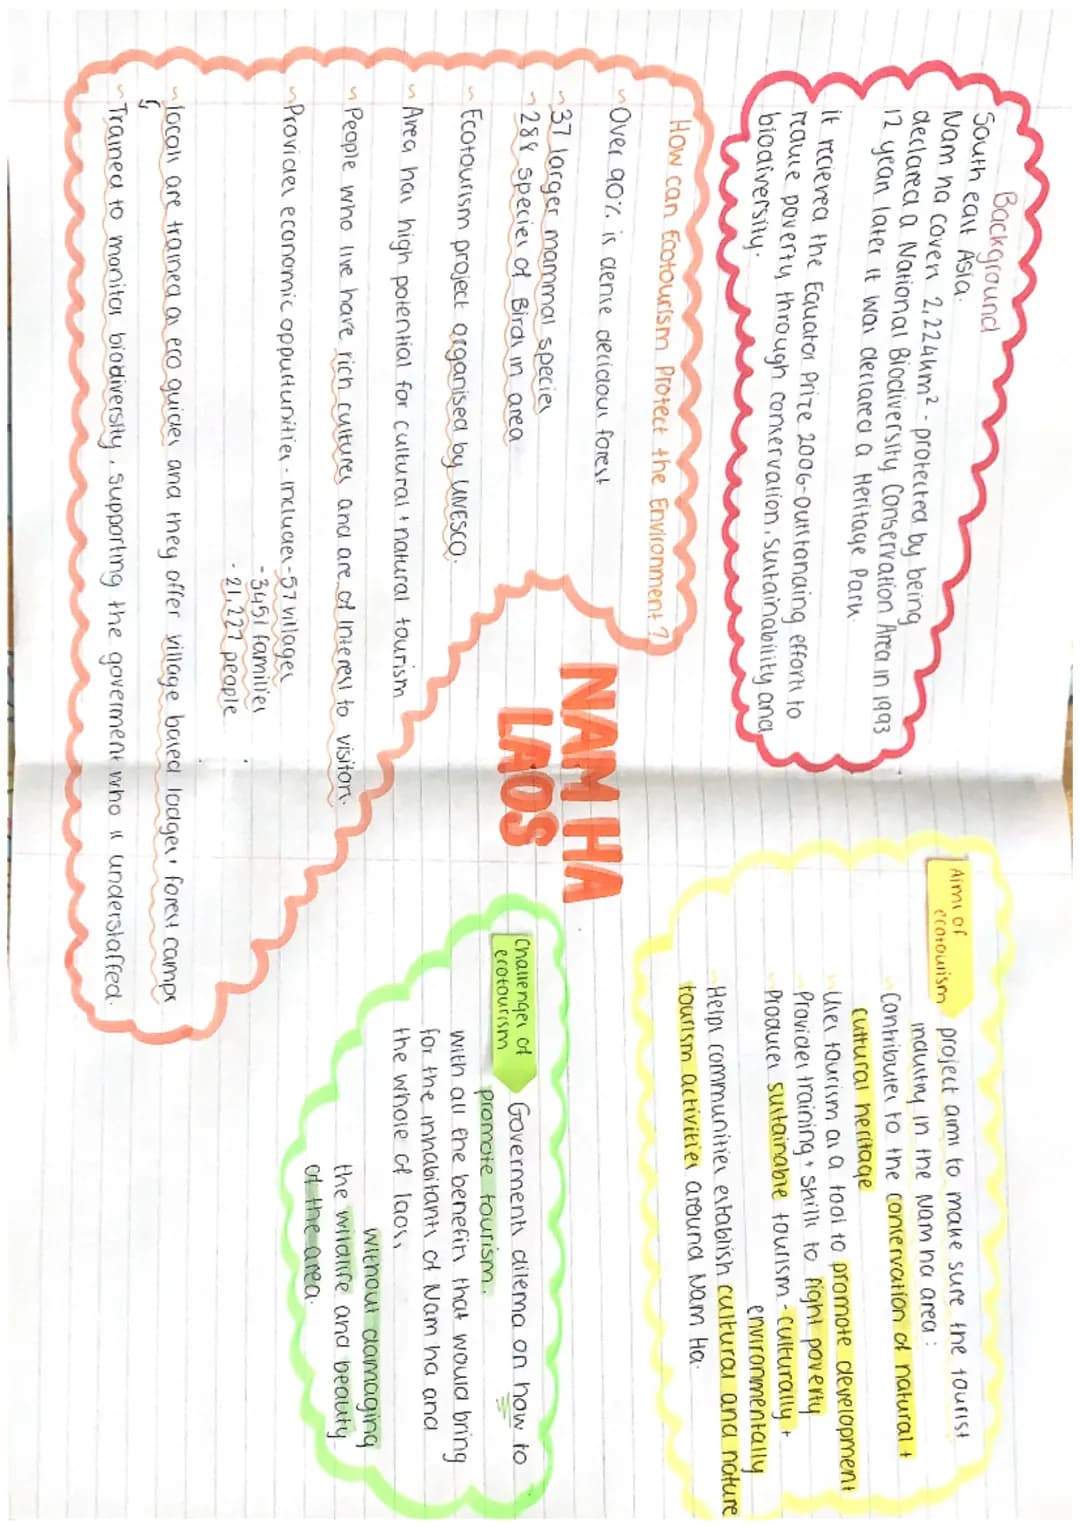 Background
South east Asia.
Nam ha covers 2,224km² - protected by being
declared a National Biodiversity Conservation Area in 1993
12 years later it was declared a Heritage Park.
It recieved the Equator Prize 2006-Outstanding efforts to
reduce poverty through conservation, sustainability and
biodiversity.
How can Ecotourism Protect the Environment?
~Over 90% is dense decidous forest
~37 larger mammal species
~288 species of Birds in area
~Ecotourism project organised by UNESCO.
~Area has high potential for cultural + natural tourism
~People who live have rich cultures and are of interest to visitors.
~Provides economic oppurtunities - includes -57 villages
-3451 families
- 21,227 people
~locals are trained as eco guides and they offer village based lodges + forest camps
~Trained to monitor biodiversity, supporting the goverment who is understaffed.
NAM HA
LAOS
Aims of
ecotourism
project aims to make sure the tourist
industry in the Nam ha area:
~Contributes to the conservation of natural +
cultural heritage
~Uses tourism as a tool to promote development
~Provides training + skills to fight poverty
~Produces sustainable tourism - culturally +
environmentally
~Helps communities establish cultural and nature
tourism activities around Nam Ha.
Challenges of
ecotourism
Governments dilema on how to
promote tourism.
with all the benefits that would bring
for the inhabitants of Nam ha and
the whole of laos,
without damaging
the wildlife and beauty
of the area.